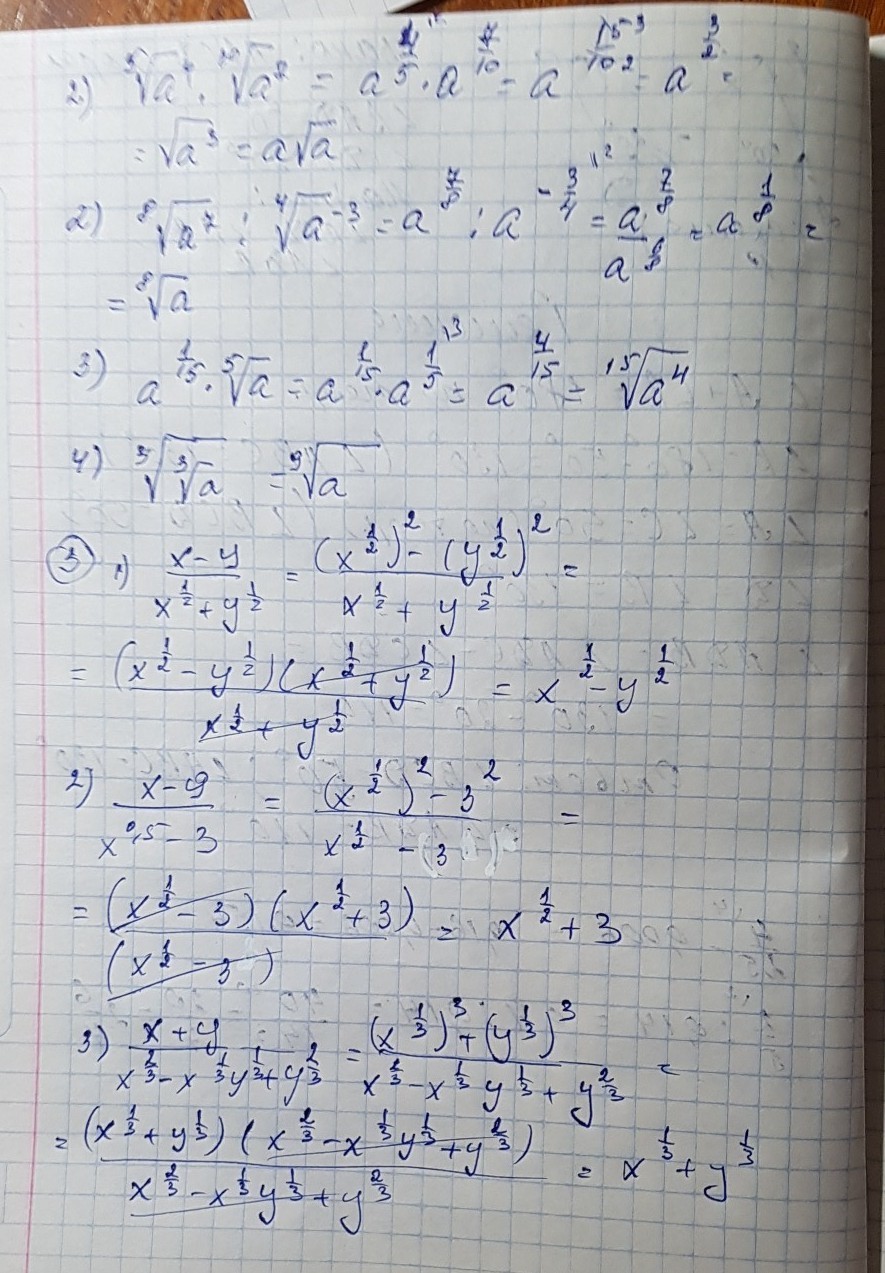 2) ⁵√a⁴ · ¹⁰√a⁷ = a^(4/5) · a^(7/10) = a^(15/10) = a^(3/2) =
= √a³ = a√a
2) ⁸√a⁷ : ⁴√a^(-3) = a^(7/8) : a^(-3/4) = a^(7/8)/a^(6/8) = a^(1/8) =
= ⁸√a
3) a^(1/15) · ⁵√a = a^(1/15) · a^(1/5) = a^(4/15) = ¹⁵√a⁴
4) ³√(³√a) = ⁹√a
③ 1) (x-y)/(x^(1/2)+y^(1/2)) = ((x^(1/2))²-(y^(1/2))²)/(x^(1/2)+y^(1/2)) =
= (x^(1/2)-y^(1/2))(x^(1/2)+y^(1/2))/(x^(1/2)+y^(1/2)) = x^(1/2)-y^(1/2)
2) (x-9)/(x^(0,5)-3) = ((x^(1/2))²-3²)/(x^(1/2)-(3) =
= (x^(1/2)-3)(x^(1/2)+3)/(x^(1/2)-3) = x^(1/2)+3
3) (x+y)/(x^(2/3)-x^(1/3)y^(1/3)+y^(2/3)) = ((x^(1/3))³+(y^(1/3))³)/(x^(2/3)-x^(1/3)y^(1/3)+y^(2/3)) =
= (x^(1/3)+y^(1/3))(x^(2/3)-x^(1/3)y^(1/3)+y^(2/3))/(x^(2/3)-x^(1/3)y^(1/3)+y^(2/3)) = x^(1/3)+y^(1/3)